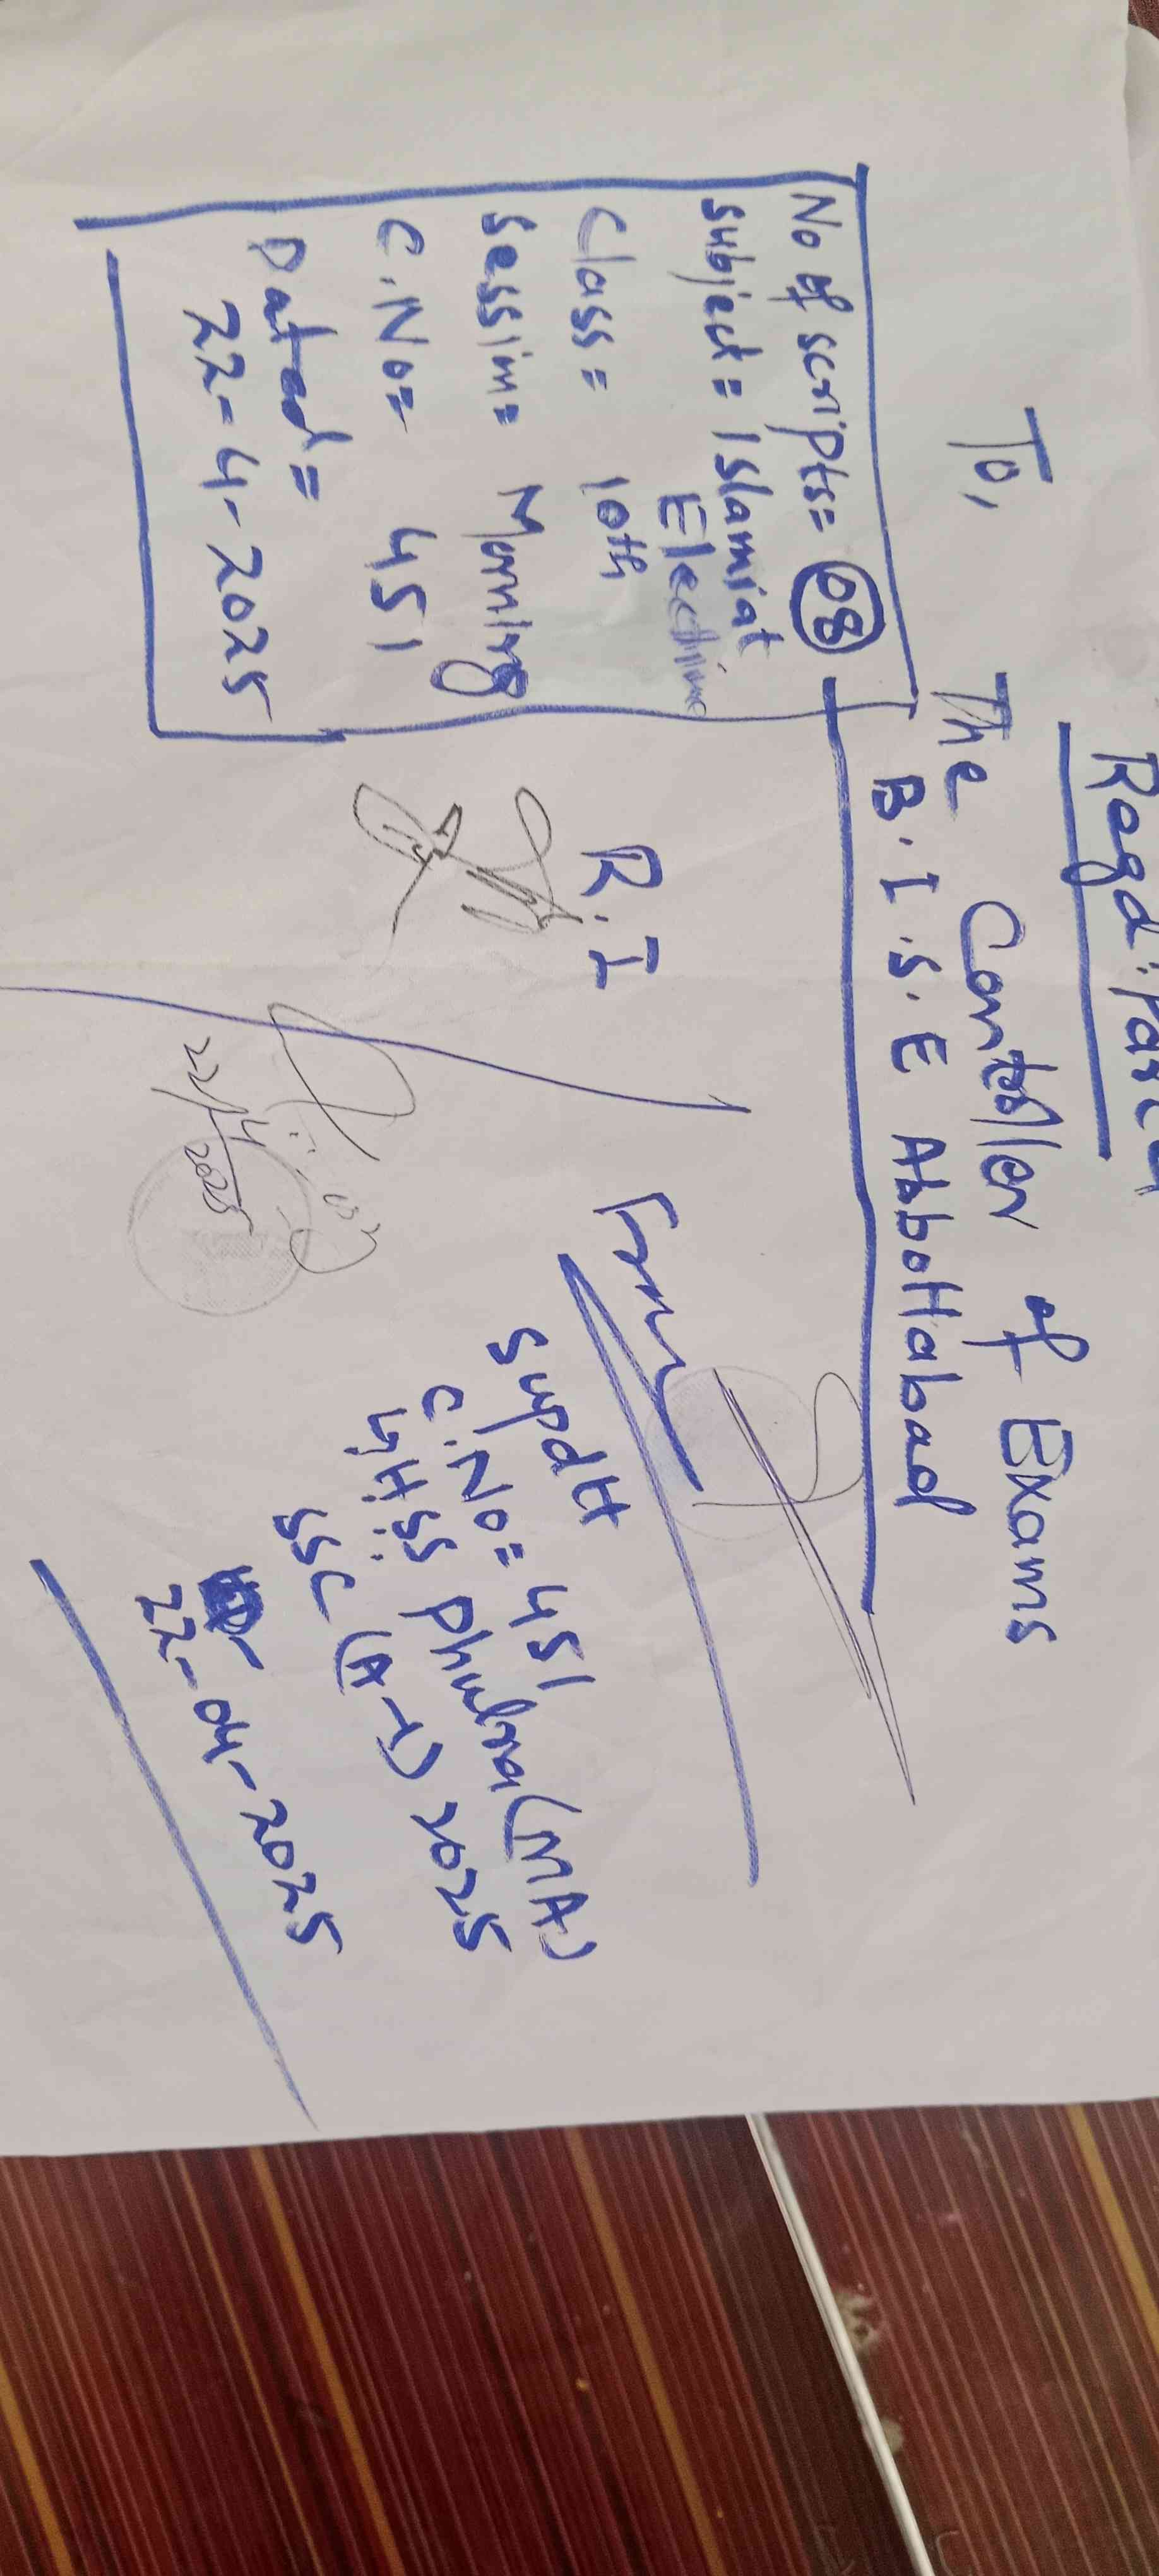 Regd: Parcel
To,
The Controller of Exams
B.I.S.E Abbottabad
No of scripts= 08
Subject = Islamiat
Elective
Class = 10th
Session= Morning
C.No= 451
Dated =
22-4-2025
R.I
22/4/2025
From
Supdtt
C.No= 451
GHSS Phulra (MA)
SSC (A-I) 2025
22-04-2025